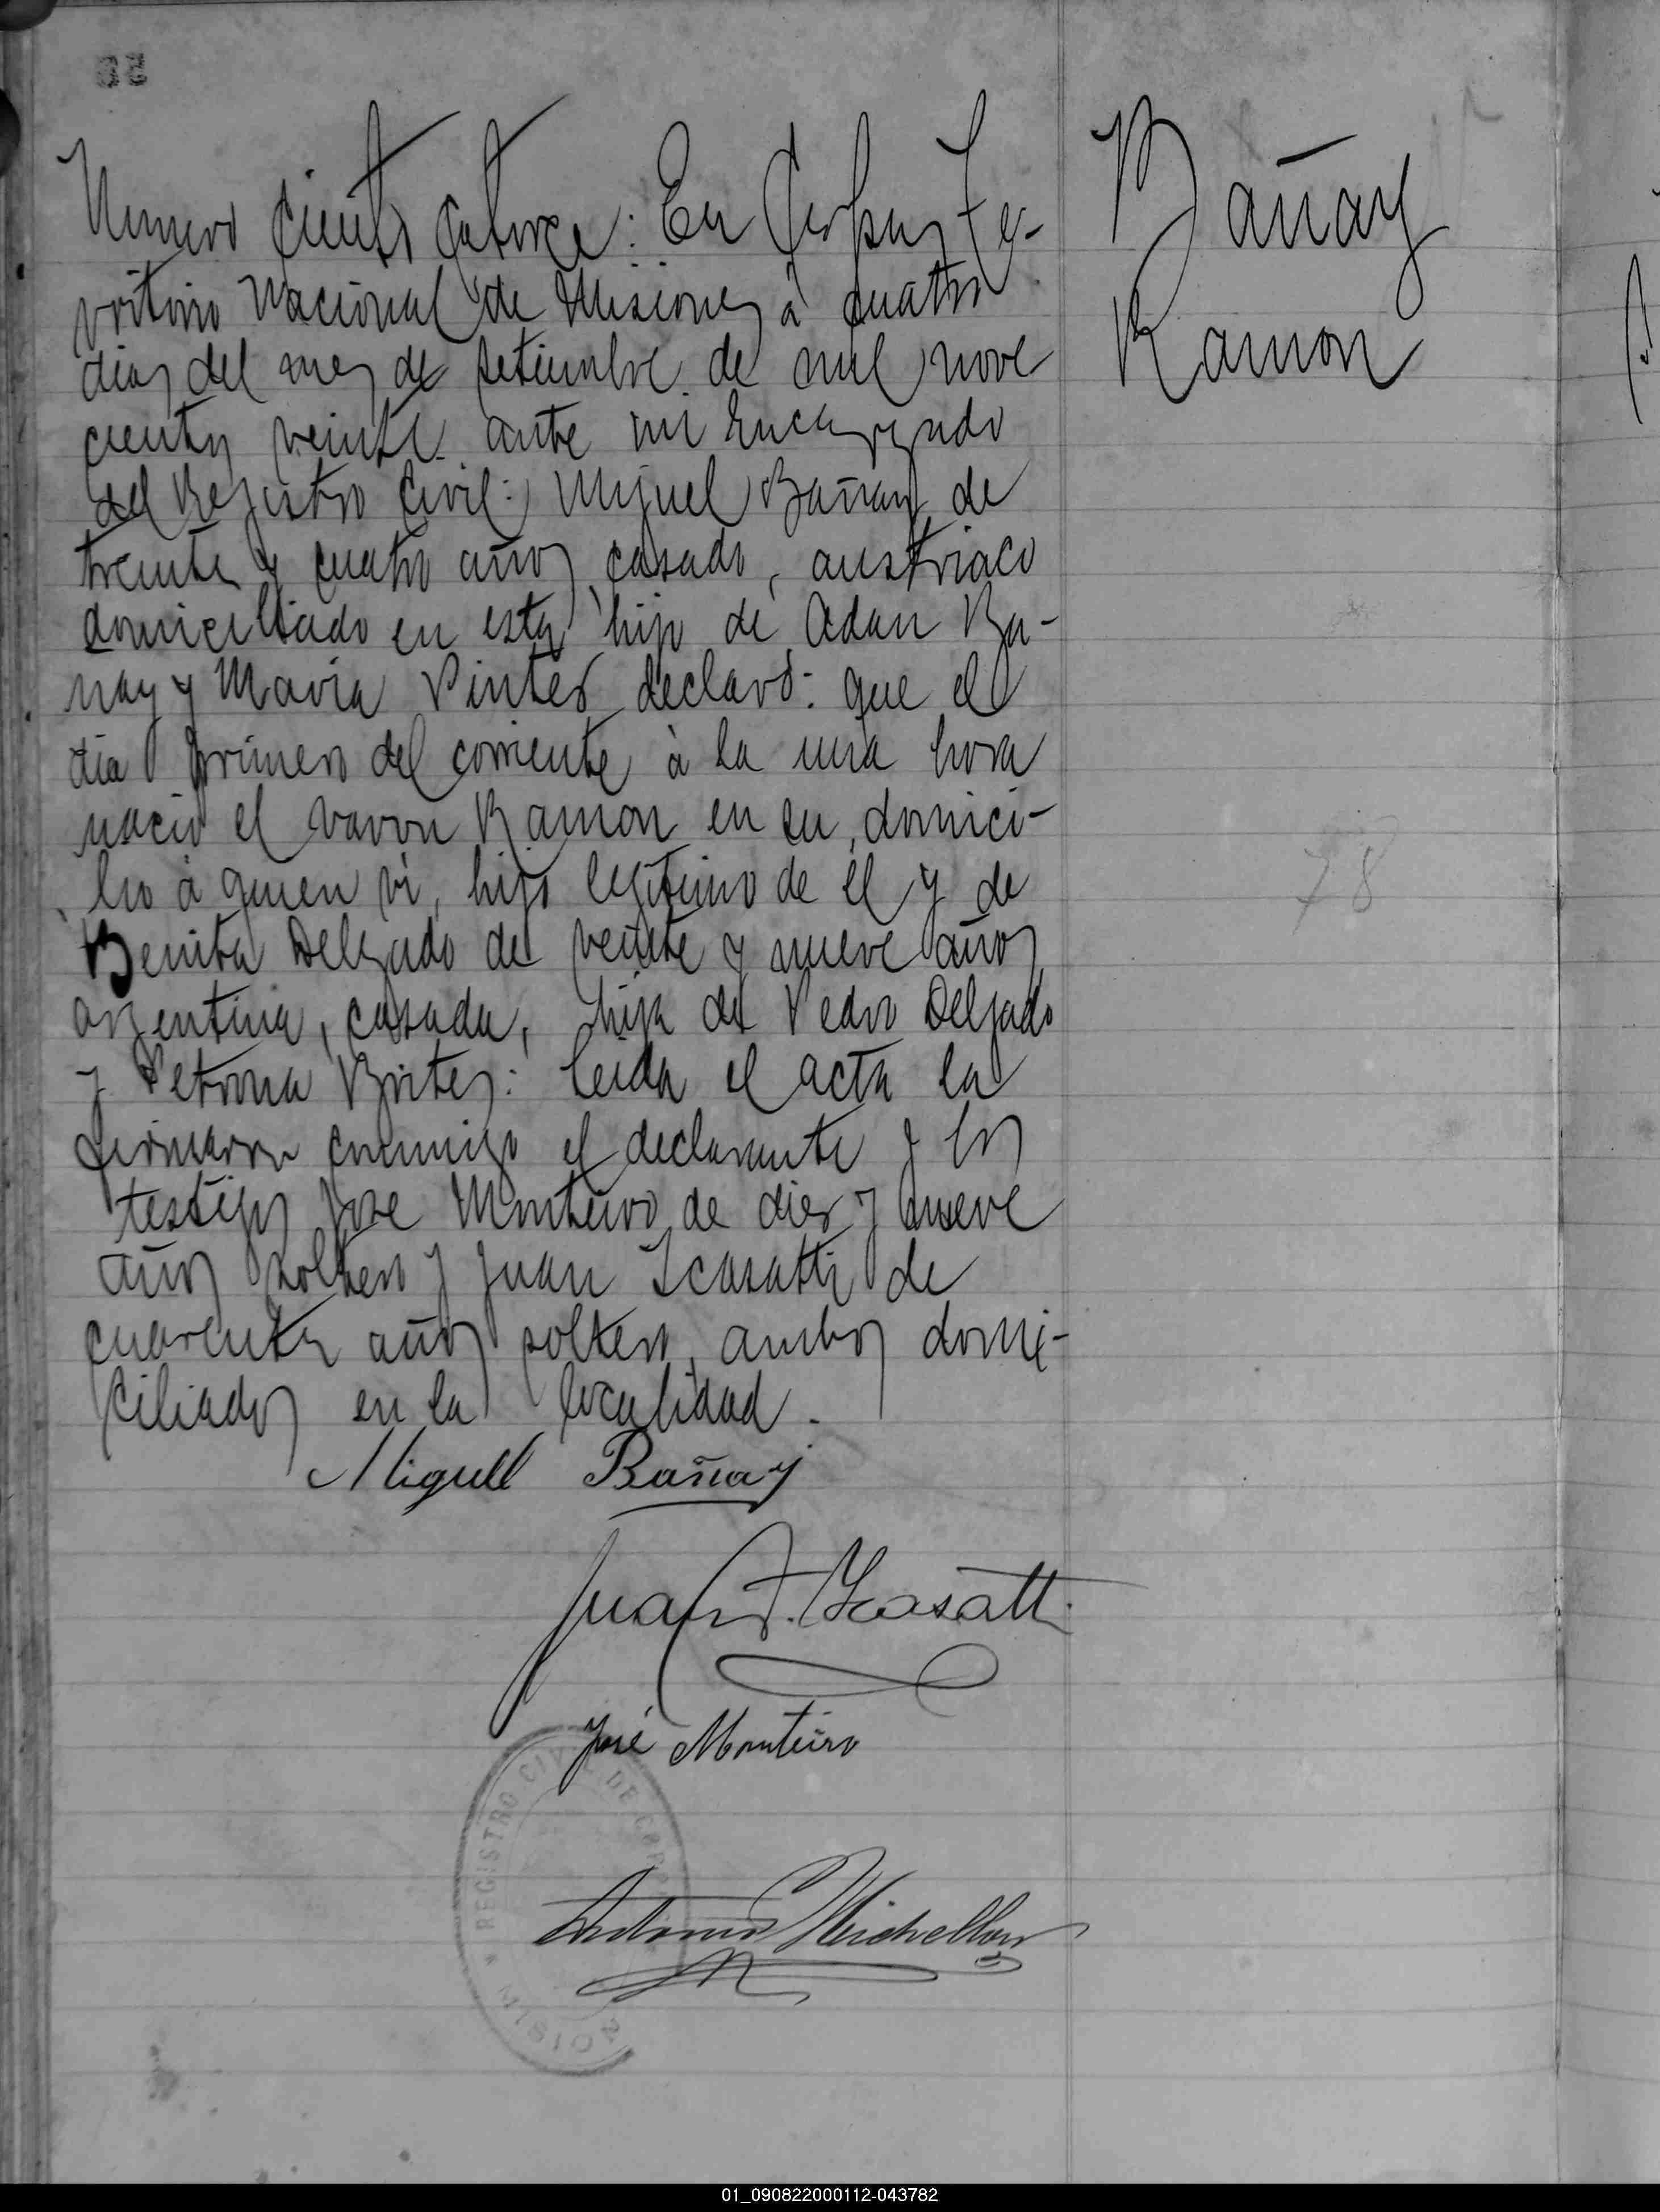 Bañay
Ramon
Numero ciento catorce: En Corpus Te-
rritorio Nacional de Misiones á cuatro
dias del mes de setiembre de mil nove
cientos veinte ante mi Encargado
del Registro Civil: Miguel Bañay de
treinta y cuatro años, casado, austriaco
domiciliado en esta hijo de Adan Ba-
nay y Maria Pinter declaró: que el
dia primero del corriente à la una hora
nació el varon Ramon en su domici-
lio á quien vi, hijo legitimo de él y de
Benita Delgado de veinte y nueve años
argentina, casada, hija de Pedro Delgado
y Petrona Britez: leida el acta la
firmaron conmigo el declarante y los
testigos Jose Monteiro de diez y nueve
años soltero y Juan Scasatti de
cuarenta años soltero, ambos domi-
ciliados en la localidad.
Miguell Bañay
Juan F. Scasatti
José Monteiro
REGISTRO CIVIL DE CORPUS
Antonio Michellon
MISIONES
78
01_090822000112-043782